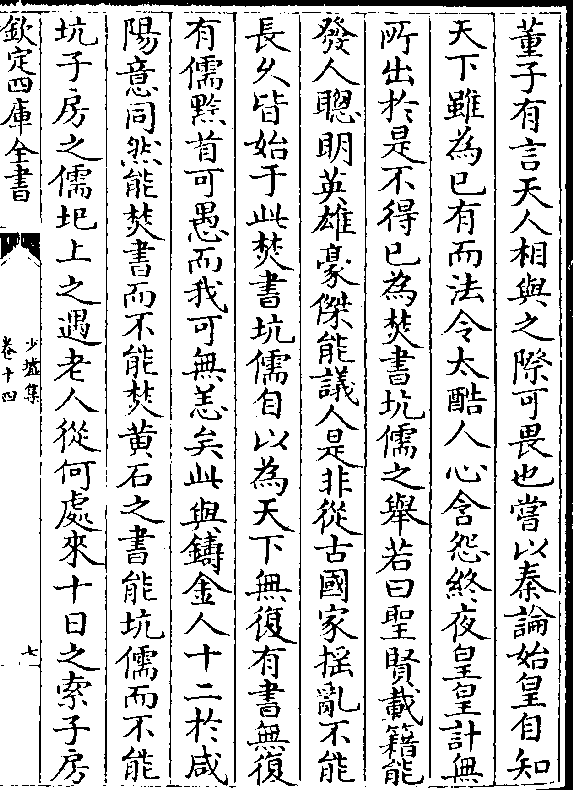 董子有言天人相與之際可畏也嘗以秦論始皇自知
天下雖為已有而法令太酷人心含怨終夜皇皇計無
所出於是不得已為焚書坑儒之舉若曰聖賢載籍能
發人聰明英雄豪傑能議人是非從古國家揺亂不能
長久皆始于此焚書坑儒自以為天下無復有書無復
有儒黔首可愚而我可無恙矣此與鑄金人十二於咸
陽意同然能焚書而不能焚黄石之書能坑儒而不能
坑子房之儒圯上之遇老人從何處來十日之索子房
欽定四庫全書
少墟集
卷十四
七